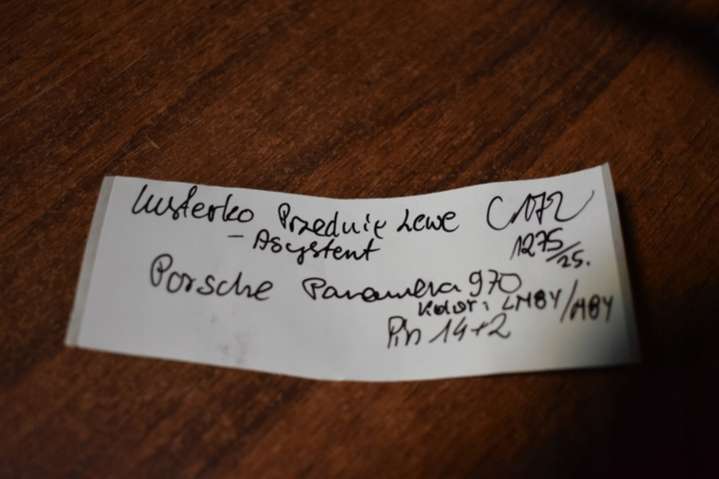 Lusterko Przednie Lewe C1072
- Asystent 1275/25.
Porsche Panamera 970
Kolor: LM8Y/M8Y
Pin 14+2